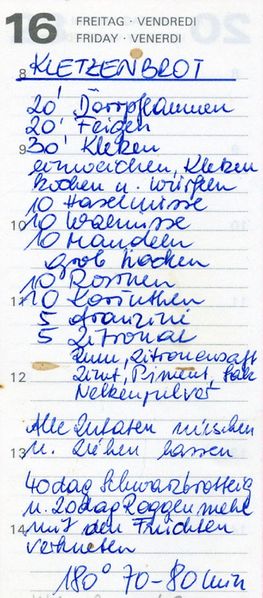 16 FREITAG · VENDREDI
FRIDAY · VENERDI
8 KLETZENBROT
20' Dörrpflaumen
20' Feigen
9 30' Kletzen
einweichen, Kletzen
kochen u. würfeln
10 Haselnüsse
10 10 Walnüsse
10 Mandeln
grob hacken
10 Rosinen
11 10 Korinthen
5 Aranzini
5 Zitronat
Rum, Zitronensaft
12 Zimt, Piment, Salz
Nelkenpulver
Alle Zutaten mischen
13 u. ziehen lassen
40 dag Schwarzbrotteig
u. 20 dag Roggenmehl
14 mit den Früchten
verkneten
180° 70-80 min